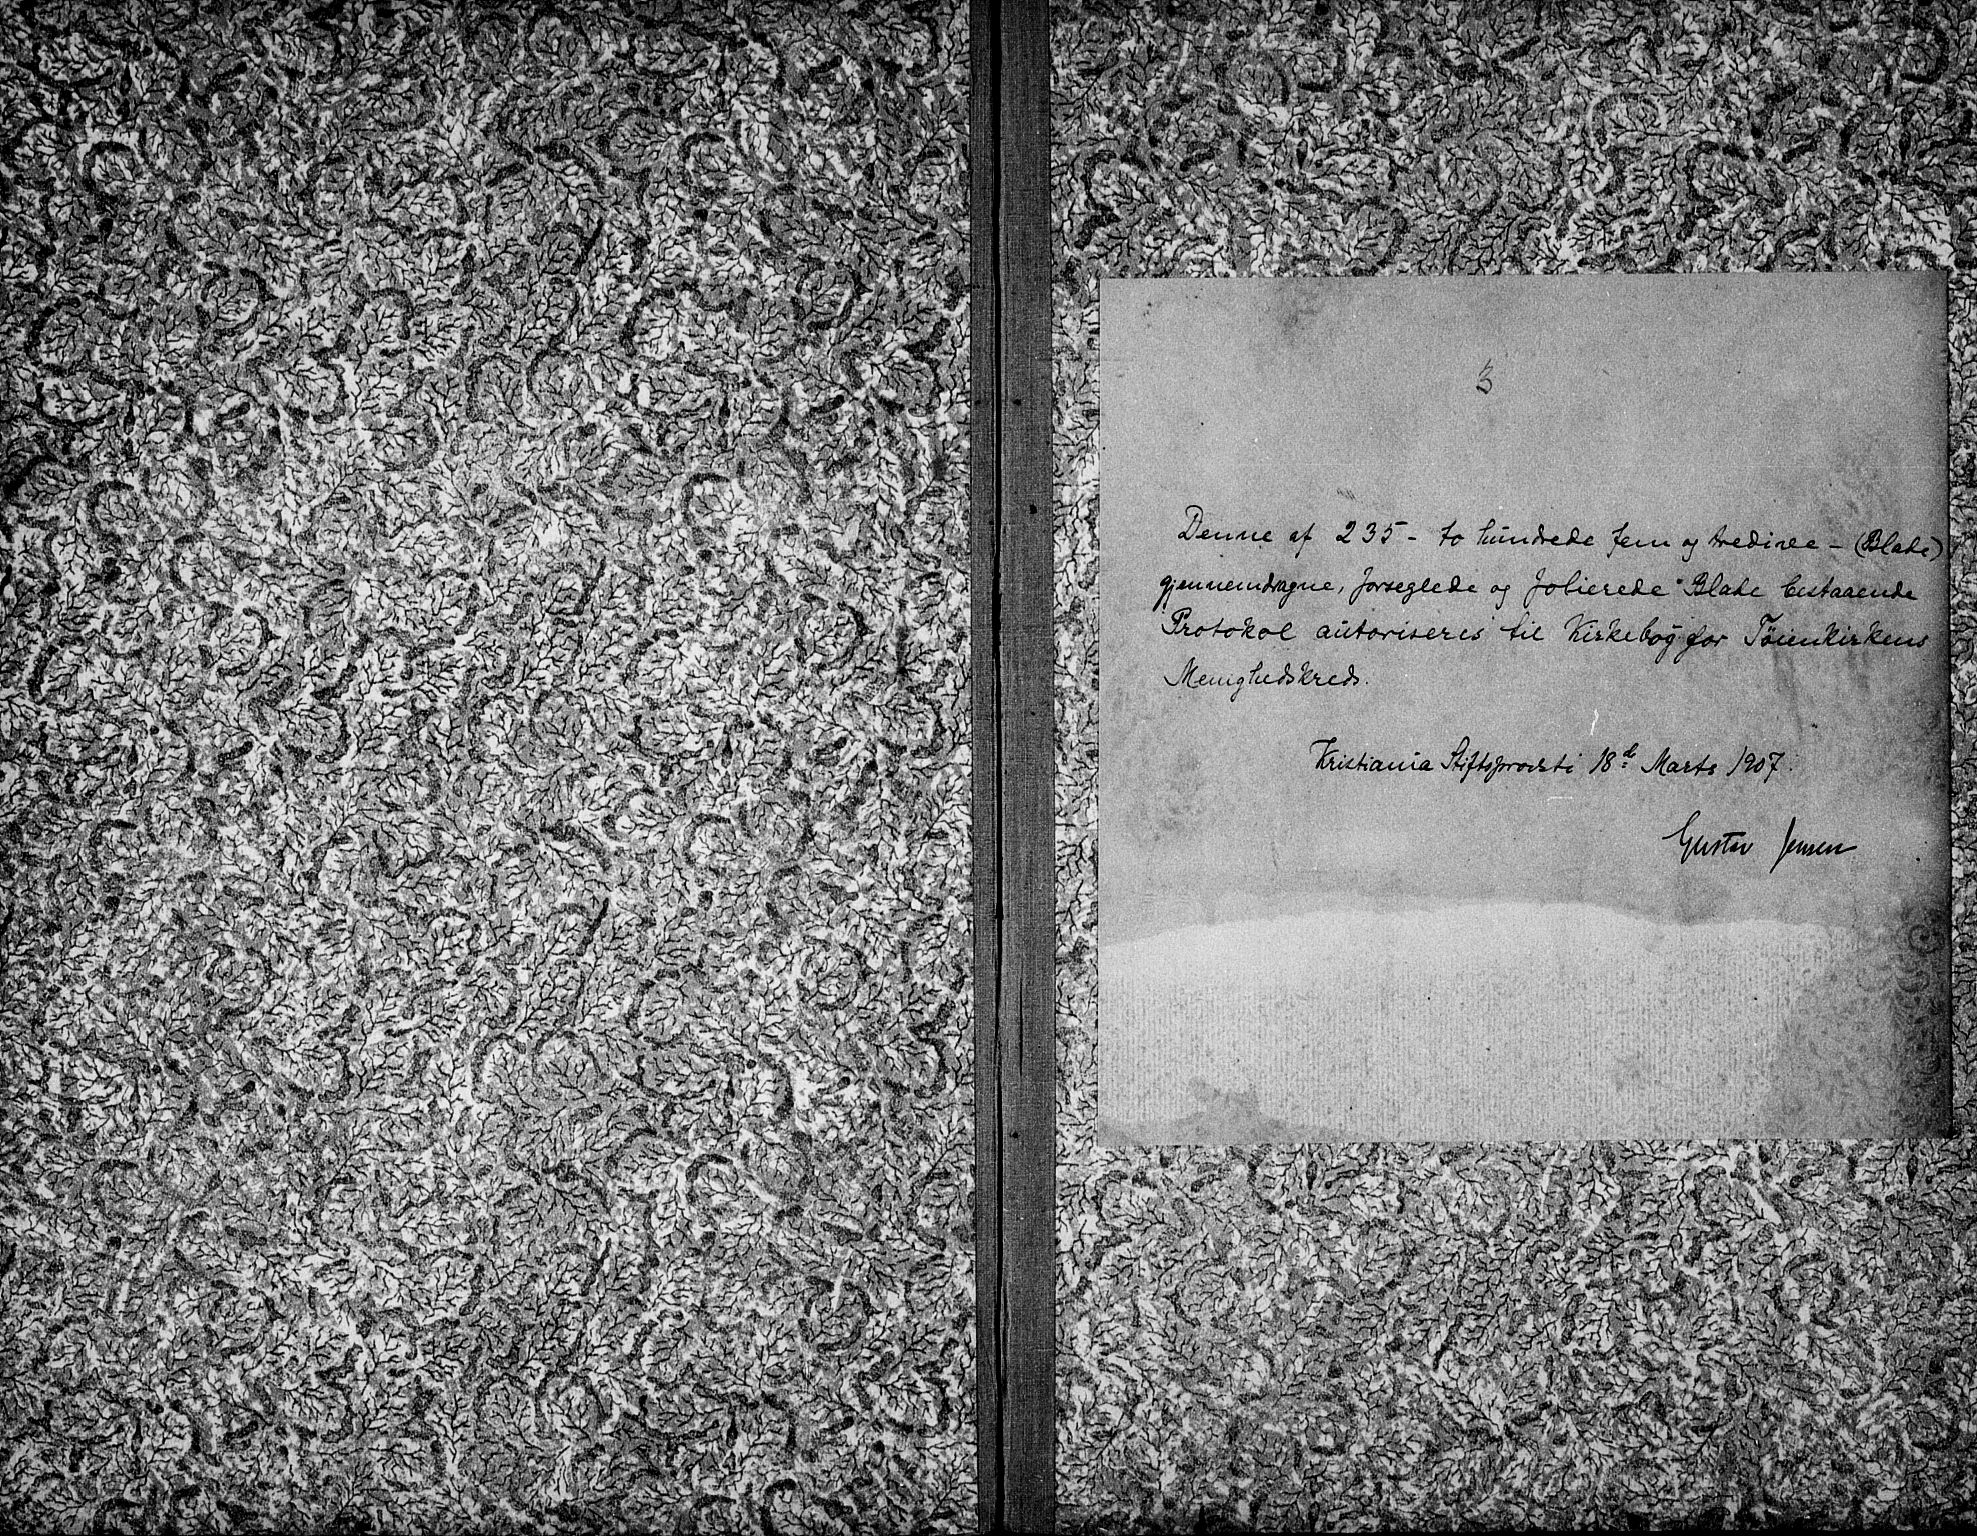 3
Denne af 235 - to hundrede fem og tredive - (Blade)
gjennemdragne, forseglede og folierede Blade bestaaende
Protokol autoriseres til Kirkebog for Tøienkirkens
Menighedskreds.
Kristiania Stiftsprovsti 18d Marts 1907.
Gustav Jensen